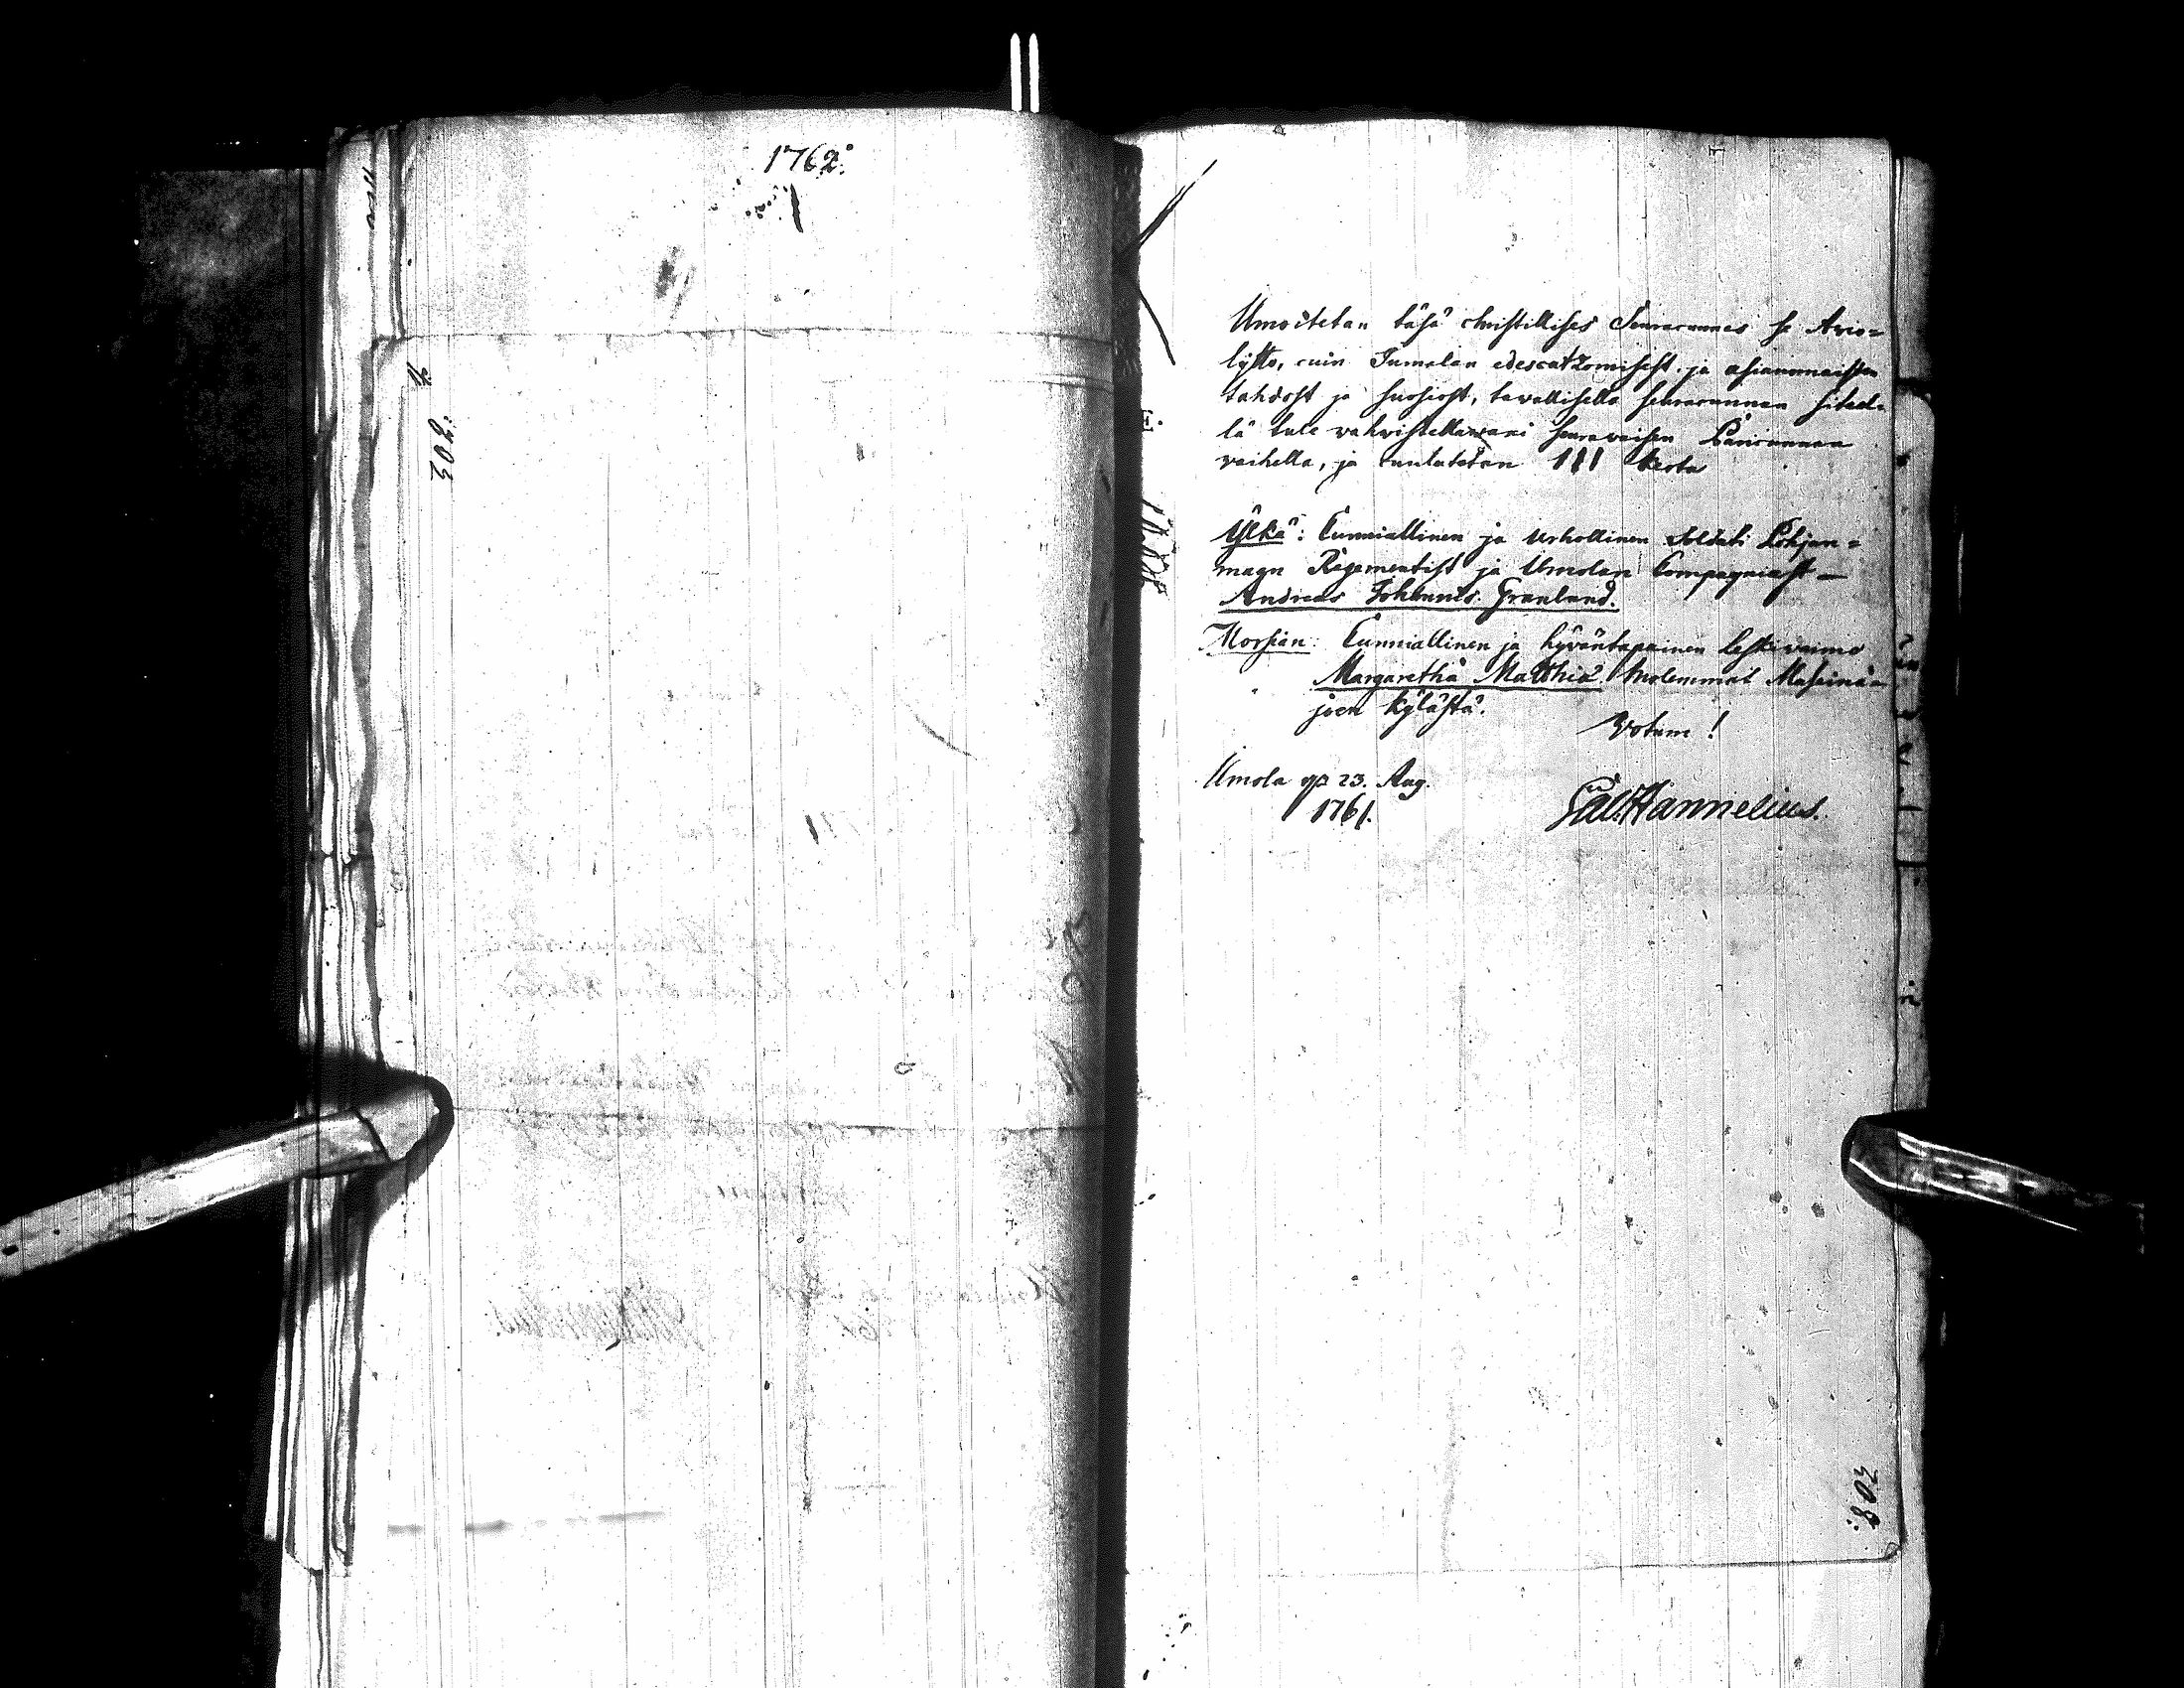 1762:
302:
Umoitetan täsä christillises Seuracunnas se Avio=
lijtto, cuin Jumalan edescatzomisest ja asianomaisten
tahdost ja suosiost, tavallisella seuracunnan siteel=
lä tule vahvistettavaxi seuravaisen Paricunnan
vaihella, ja cuulutetan III kerta
Ylkä: Cunniallinen ja urhollinen Soldati Pohjan=
maan Regementist ja Umolan Compagniast —
Andreas Johannis. Granlund.
Morsian: Cunniallinen ja hyväntapainen leskivaimo
Margaretha Matthiæ. Molemmat
joen kylästä.
Votum!
Umola 23. Aug.
1761.
Gab. Hannelius.
308: